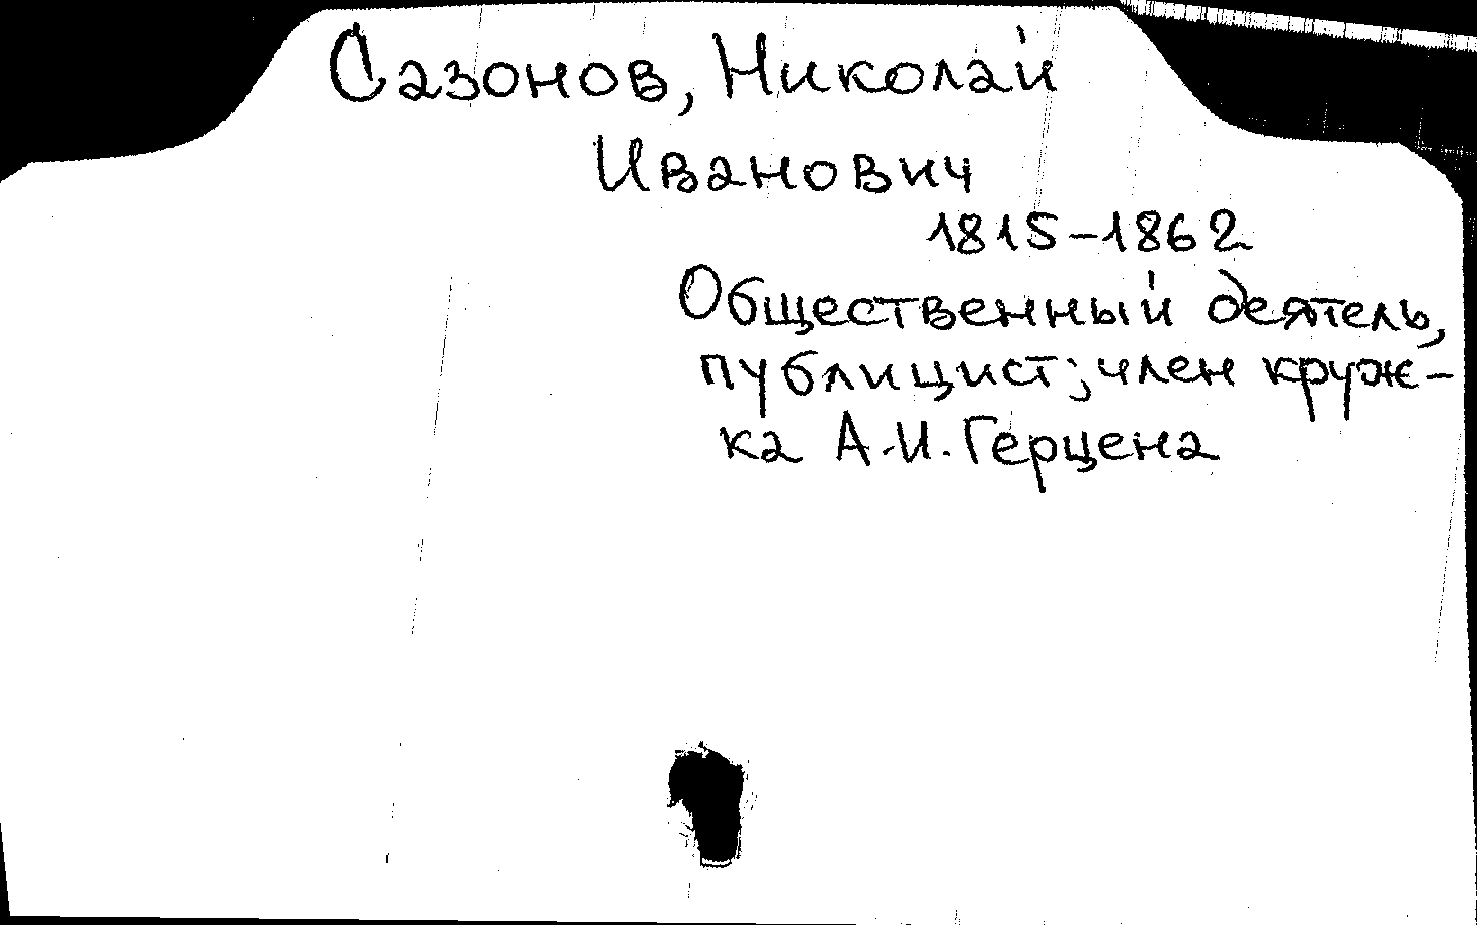 Сазонов, Николай
Иванович
1815-1862
Общественный деятель,
публицист; член круж-
ка А.И. Герцена